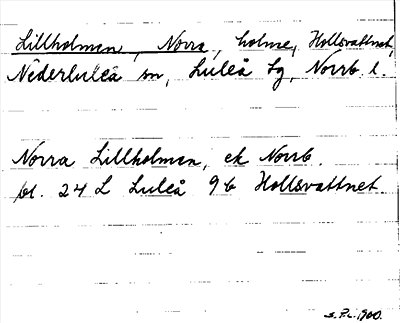 Lillholmen, Norra, holme, Hollsvattnet,
Nederluleå sn, Luleå tg, Norrb. l.
Norra Lillholmen, ek Norrb.
bl. 24 L Luleå 9 b Hollsvattnet.